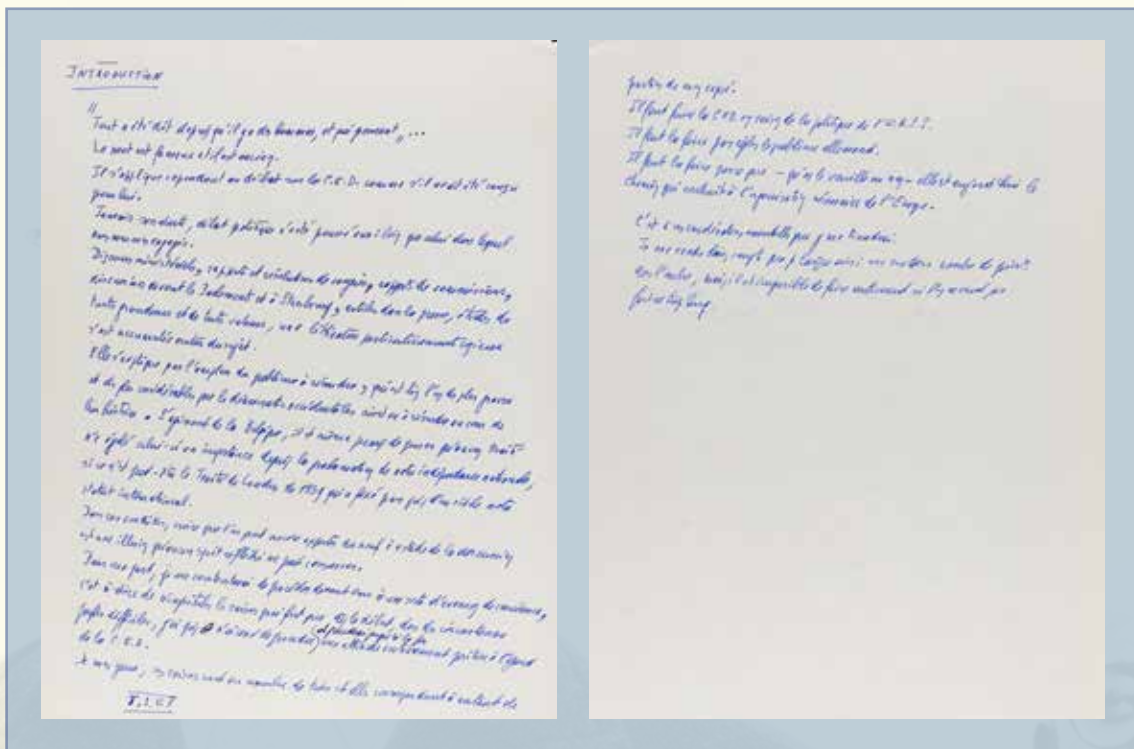 INTRODUCTION
"Tout a été dit depuis qu'il y a des hommes, et qui pensent", ...
Le mot est fameux et il est ancien.
Il s'applique cependant au débat sur la C.E.D. comme s'il avait été conçu
pour lui.
Jamais sans doute, débat politique n'a été poussé aussi loin que celui dans lequel
nous sommes engagés.
Discours ministériels, rapports et résolutions de congrès, rapports de commissions,
discussions devant le Parlement et à Strasbourg, articles dans la presse, études de
toute provenance et de toute valeur, une littérature particulièrement copieuse
s'est accumulée autour du sujet.
Elle s'explique par l'ampleur du problème à résoudre, qui est l'un des plus graves
et des plus considérables que les démocraties occidentales aient eu à résoudre au cours de
leur histoire. S'agissant de la Belgique, il est même permis de penser qu'aucun Traité
n'a égalé celui-ci en importance depuis la proclamation de notre indépendance nationale,
si ce n'est peut-être le Traité de Londres de 1839 qui a fixé pour près d'un siècle notre
statut international.
Dans ces conditions, croire que l'on peut encore apporter du neuf à
est une illusion qu'aucun esprit réfléchi ne peut conserver.
Pour ma part, je me contenterai de procéder devant vous à une sorte d'examen de conscience,
c'est à dire de récapituler les raisons qui font que, dès le début, dans des circonstances
parfois difficiles, j'ai pris
de la C.E.D.
A mes yeux, ces raisons sont au nombre de trois et elles correspondent à autant de
parties de mon exposé.
Il faut faire la C.E.D. en raison de la politique de l'U.R.S.S.
Il faut la faire pour régler le problème allemand.
Il faut la faire parce que – qu'on le veuille ou non – elle est aujourd'hui le
chemin qui conduit à l'organisation de l'Europe.
C'est à ces considérations essentielles que je me tiendrai.
Je me rends bien compte que je laisse ainsi un certain nombre de points
dans l'ombre, mais il est impossible de faire autrement si l'on ne veut pas
parler trop longtemps.